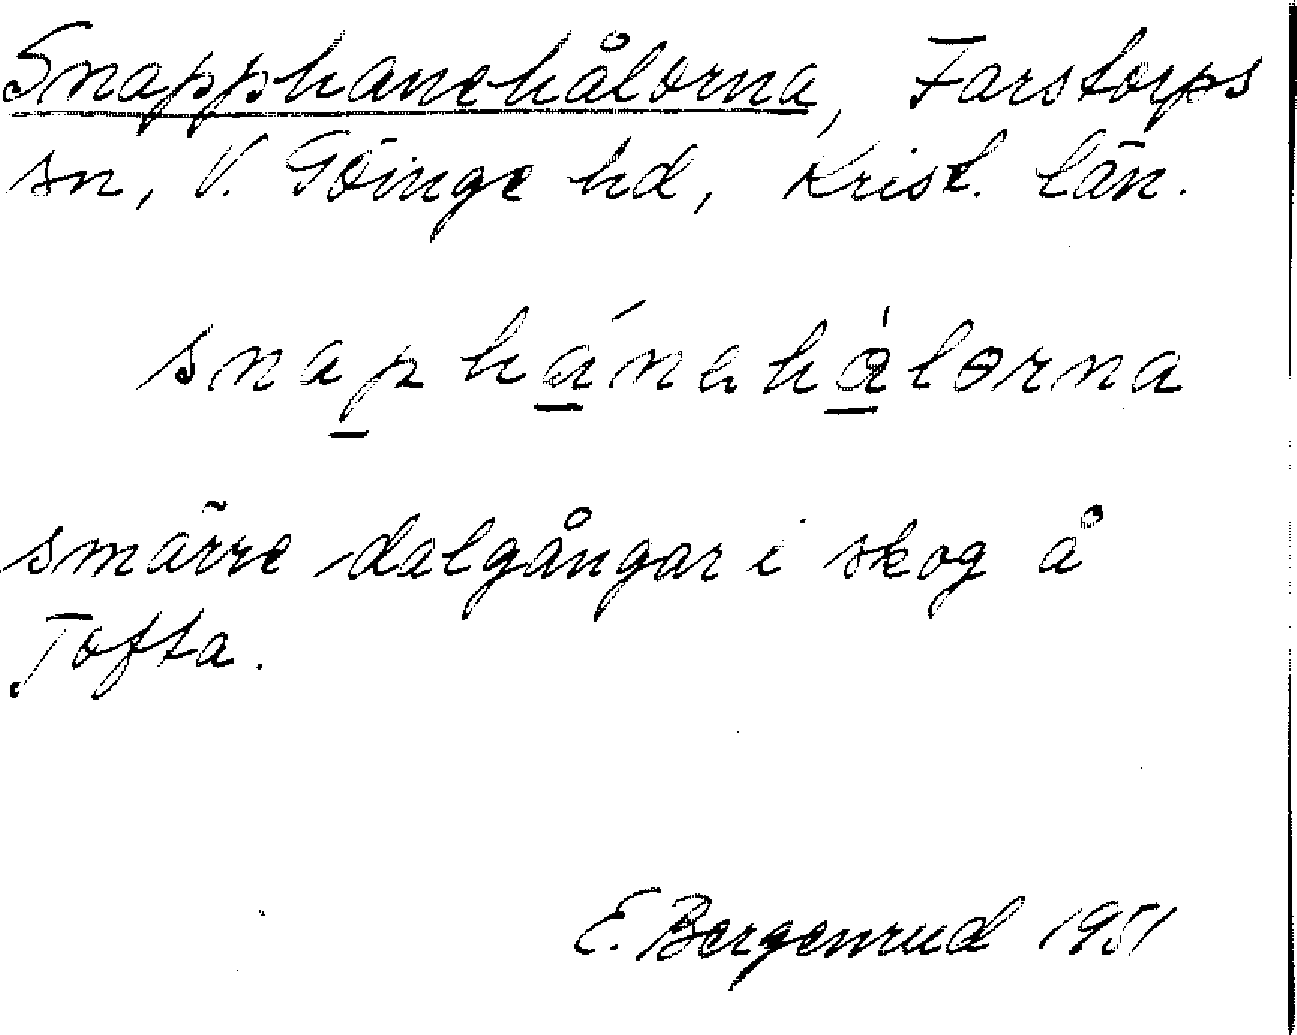 Snapphanehålorna, Farstorps
sn, V. Göinge hd, Krist. län.
snaphánahålorna
smärre dalgångar i skog å
Tofta.
E. Bergenrud 1951